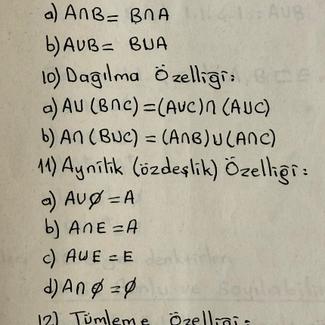 a) A∩B = B∩A
b) A∪B = B∪A
10) Dağılma Özelliği:
a) A∪(B∩C) = (A∪C)∩(A∪C)
b) A∩(B∪C) = (A∩B)∪(A∩C)
11) Aynilik (özdeşlik) Özelliği:
a) A∪∅ = A
b) A∩E = A
c) A∪E = E
d) A∩∅ = ∅
12) Tümleme Özelliği: